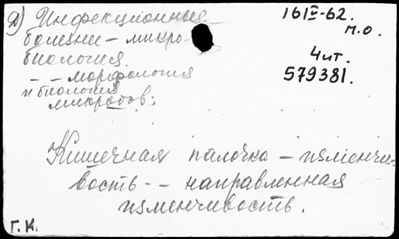 д) Инфекционные
болезни - микро-
биология.
- - морфология
и биология
микробов:
16 IV-62.
м.о.
4 ит.
579381.
Кишечная палочка - изменчи-
вость - - направленная
изменчивость.
Г.К.